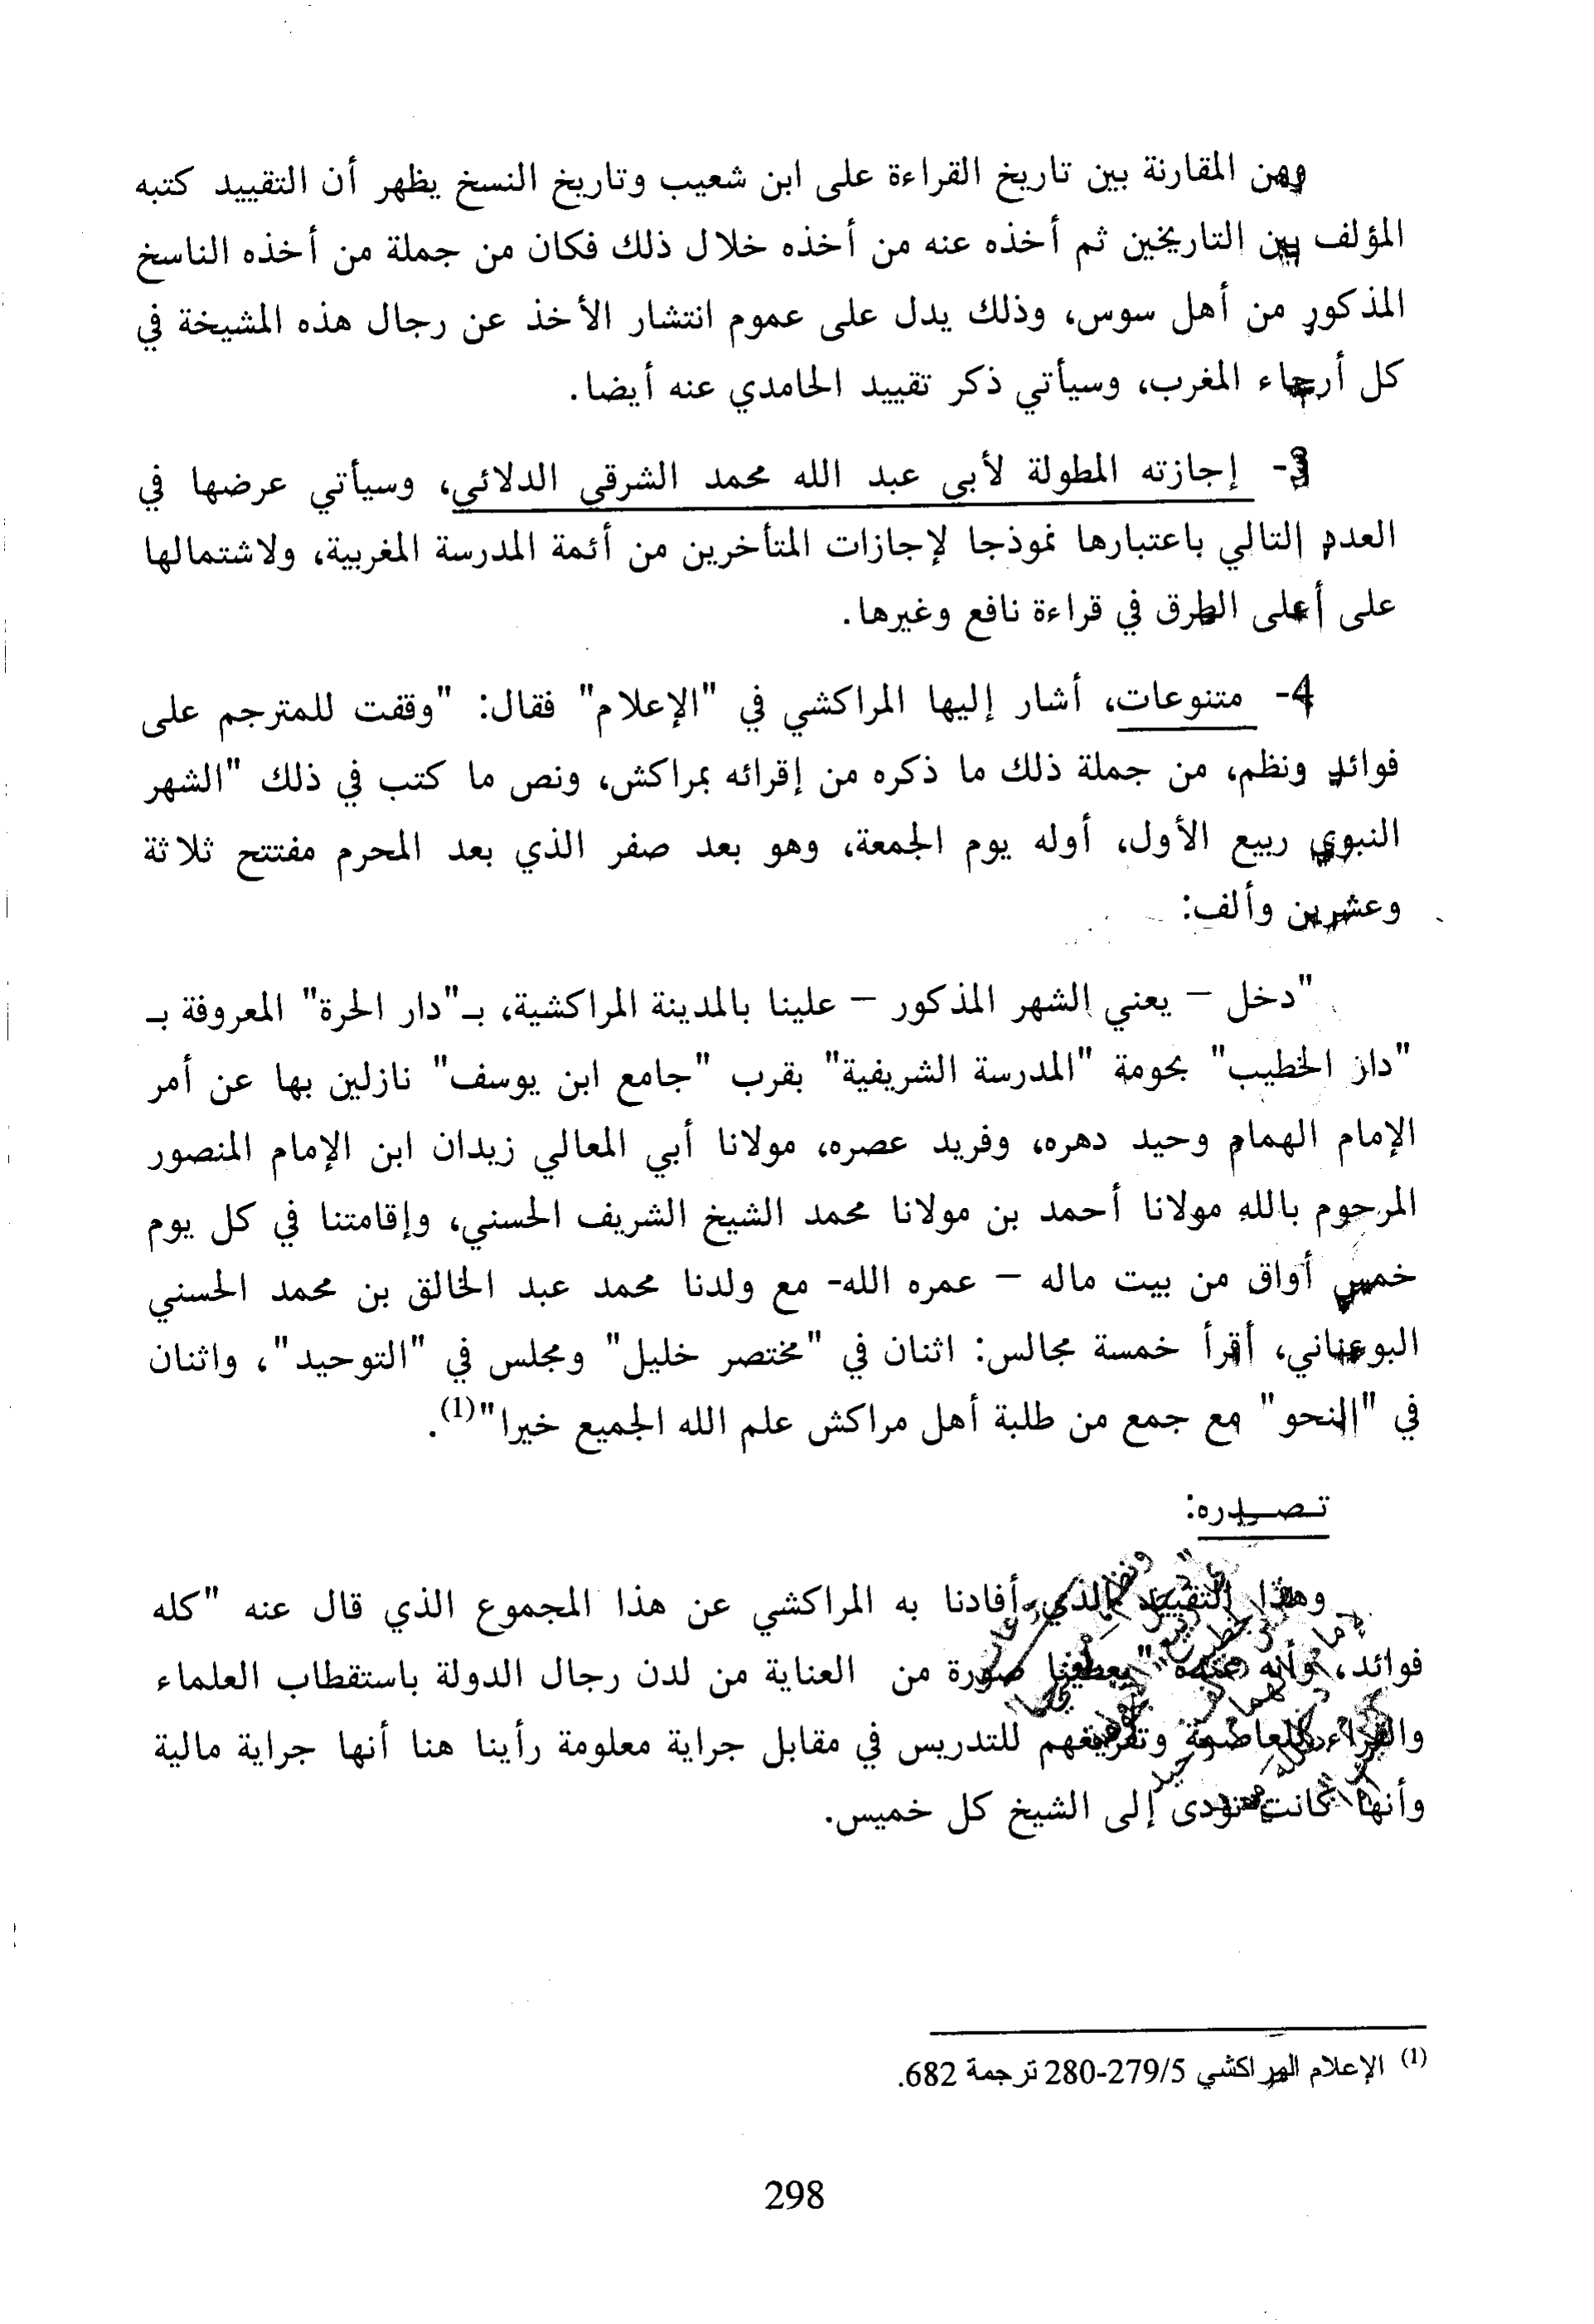 ومن المقارنة بين تاريخ القراءة على ابن شعيب وتاريخ النسخ يظهر أن التقييد كتبه
المؤلف بين التاريخين ثم أخذه عنه من أخذه خلال ذلك فكان من جملة من أخذه الناسخ
المذكور من أهل سوس، وذلك يدل على عموم انتشار الأخذ عن رجال هذه المشيخة في
كل أرجاء المغرب، وسيأتي ذكر تقييد الحامدي عنه أيضا.
3- إجازته المطولة لأبي عبد الله محمد الشرقي الدلائي، وسيأتي عرضها في
العدد التالي باعتبارها نموذجا لإجازات المتأخرين من أئمة المدرسة المغربية، ولاشتمالها
على أعلى الطرق في قراءة نافع وغيرها.
4- متنوعات، أشار إليها المراكشي في "الإعلام" فقال: "وقفت للمترجم على
فوائد ونظم، من جملة ذلك ما ذكره من إقرائه بمراكش، ونص ما كتب في ذلك "الشهر
النبوي ربيع الأول، أوله يوم الجمعة، وهو بعد صفر الذي بعد المحرم مفتتح ثلاثة
وعشرين وألف:
"دخل – يعني الشهر المذكور – علينا بالمدينة المراكشية، بـ"دار الحرة" المعروفة بـ
"دار الخطيب" بحومة "المدرسة الشريفية" بقرب "جامع ابن يوسف" نازلين بها عن أمر
الإمام الهمام وحيد دهره، وفريد عصره، مولانا أبي المعالي زيدان ابن الإمام المنصور
المرحوم بالله مولانا أحمد بن مولانا محمد الشيخ الشريف الحسني، وإقامتنا في كل يوم
خميس أواق من بيت ماله – عمره الله- مع ولدنا محمد عبد الخالق بن محمد الحسني
البوعناني، أقرأ خمسة مجالس: اثنان في "مختصر خليل" ومجلس في "التوحيد"، واثنان
في "النحو" مع جمع من طلبة أهل مراكش علم الله الجميع خيرا"(1).
تـصـدره:
وهذا التقييد الذي أفادنا به المراكشي عن هذا المجموع الذي قال عنه "كله
فوائد، وأنه عنده" يعطينا صورة من العناية من لدن رجال الدولة باستقطاب العلماء
والقراء للعاصمة وتفريغهم للتدريس في مقابل جراية معلومة رأينا هنا أنها جراية مالية
وأنها كانت تؤدى إلى الشيخ كل خميس.
(1) الإعلام المراكشي 5/279-280 ترجمة 682.
298